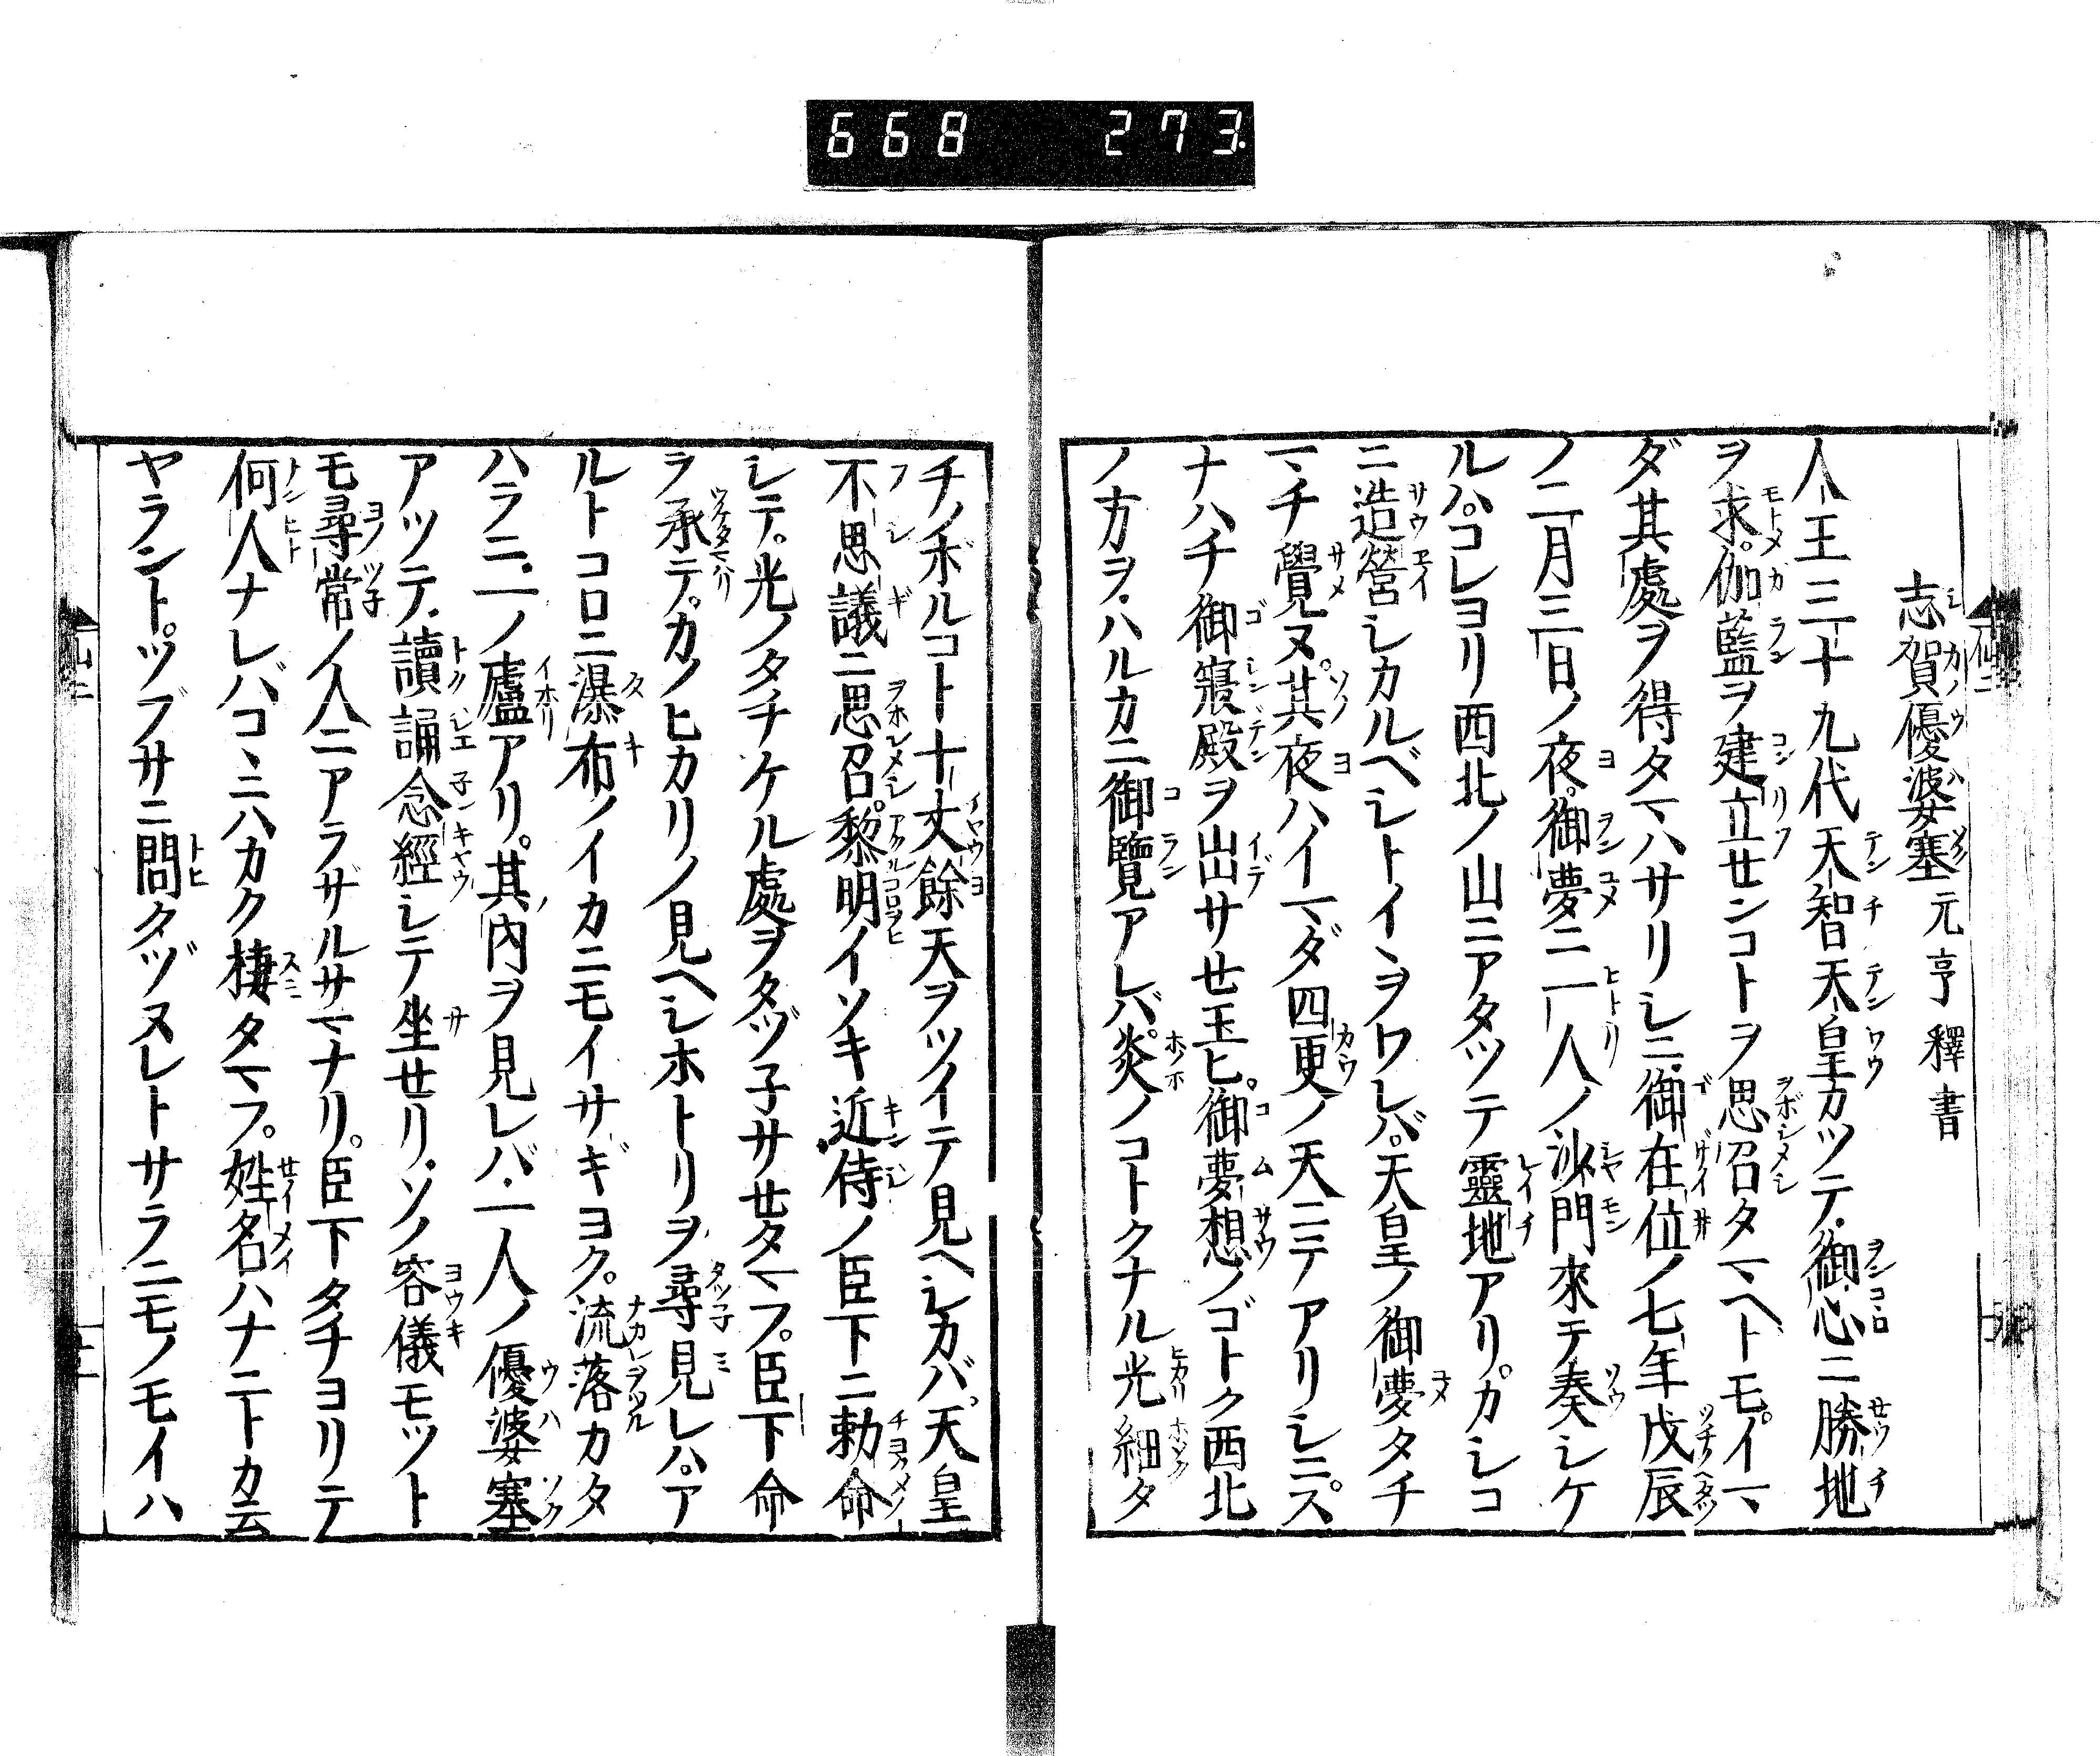 668 273.
志賀優婆塞 元亨釋書
人王三十九代天智天皇カツテ御心ニ勝地
ヲ求伽藍ヲ建立せンコトヲ思召タマヘトモイマ
ダ其處ヲ得タマハサリシニ御在位ノ七年戊辰
ノ二月三日ノ夜御夢ニ一人ノ沙門來テ奏シケ
ルハコレヨリ西北ノ山ニアタツテ靈地アリカシコ
ニ造營シカルベシトイヽヲワレバ天皇ノ御夢タチ
マチ覺ヌ其夜ハイマダ四更ノ天ニテアリシニス
ナハチ御寢殿ヲ出サせ玉ヒ御夢想ノゴトク西北
ノカヲハルカニ御覽アレバ炎ノコトクナル光細タ
チノボルコト十丈餘天ヲツイテ見ヘシカバ天皇
不思議ニ思召黎明イソキ近侍ノ臣下ニ勅命
シテ光ノタチケル處ヲタヅ子サせタマフ臣下命
ヲ承テカノヒカリノ見ヘシホトリヲ尋見レハア
ルトコロニ瀑布ノイカニモイサギヨク流落カタ
ハラニ一ノ廬アリ其内ヲ見レバ一人ノ優婆塞
アツテ讀誦念經シテ坐せリソノ容儀モツト
モ尋常ノ人ニアラザルサマナリ臣下タチヨリテ
何人ナレバコヽニハカク棲タマフ姓名ハナニトカ云
ヤラントツブサニ問タヅヌレトサラニモノモイハ